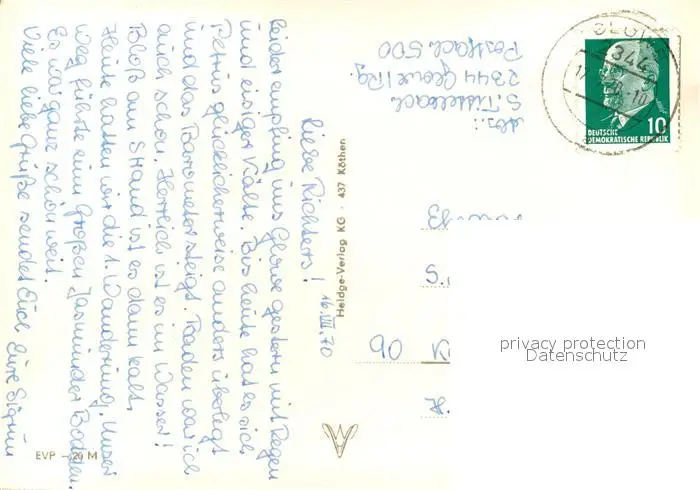 Liebe Richters!
16.III.70
leider empfing uns Glowe gestern mit Regen
und eisiger Kälte. Bis heute hat es sich
Petrus glücklicherweise anders überlegt
und das Barometer steigt. Baden war ich
auch schon. Herrlich ist es im Wasser!
Bloß am Strand ist es dann kalt.
Heute hatten wir die 1. Wanderung. Unser
Weg führte zum Großen Jasmunder Bodden.
Es war ganz schön weit.
Viele liebe Grüße sendet Euch Eure Sigrun
Abs.:
2344 Glowe/Rg.
Postfach 500
Heldge-Verlag KG · 437 Köthen
EVP – 20 M
2344
DEUTSCHE
DEMOKRATISCHE REPUBLIK
10
privacy protection
Datenschutz